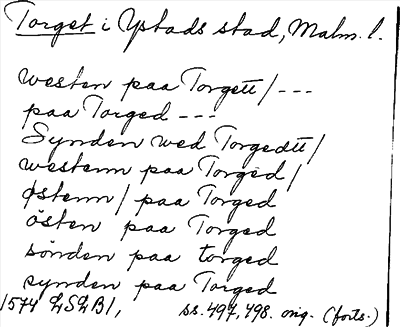 Torget i Ystads stad, Malm. l.
westen paa Torgett/---
paa Torged ---
Synden wed Torgedtt/
westenn paa Torged/
østenn/ paa Torged
östen paa Torged
sönden paa torged
synden paa Torged
1574 LSLB1, ss. 497, 498. orig. (forts.)